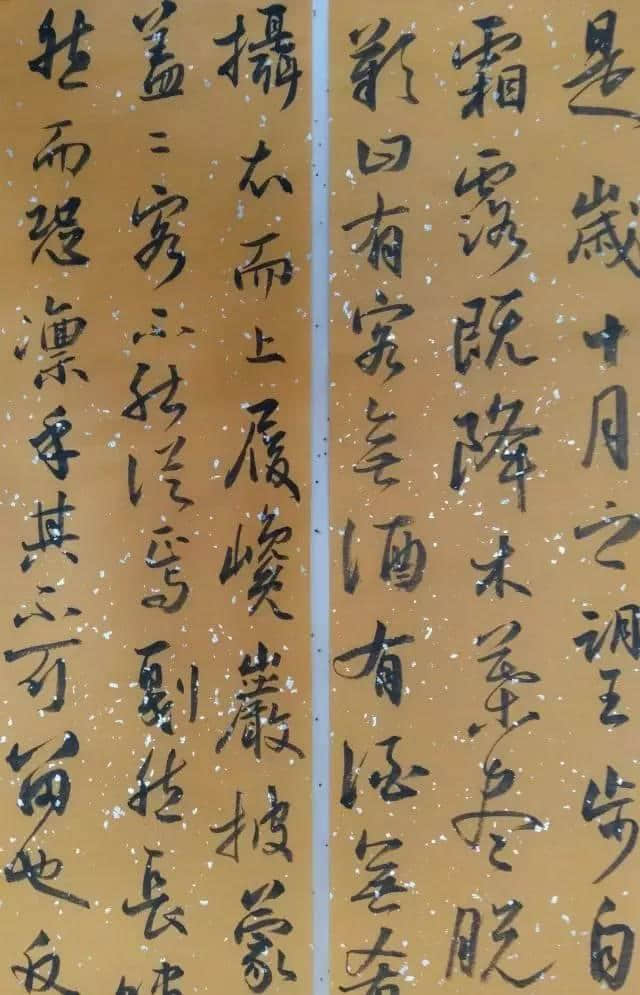 是歲十月之望步自
霜露既降木葉盡脫
歎曰有客無酒有酒無肴
攝衣而上履巉巖披蒙
蓋二客不能從焉劃然長嘯
然而恐凛乎其不可留也反